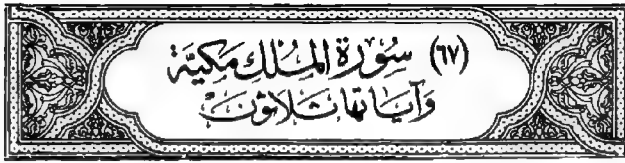 (٦٧) سُورَة المُلْكِ مَكِيَّة
وَآيَاتهَا ثَلَاثُونَ